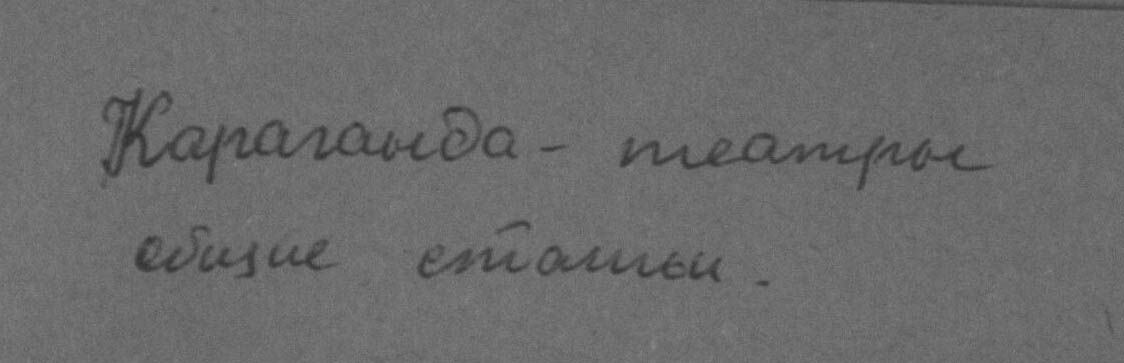 Караганда - театры
общие статьи.